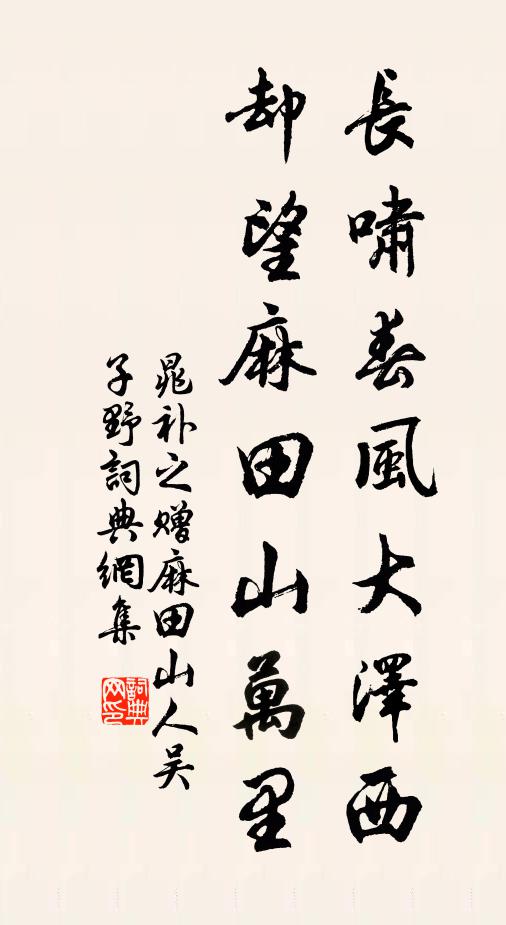 長嘯春風大澤西
却望麻田山萬里
晁补之赠麻田山人吴
子野詞典網集
詞典
网印